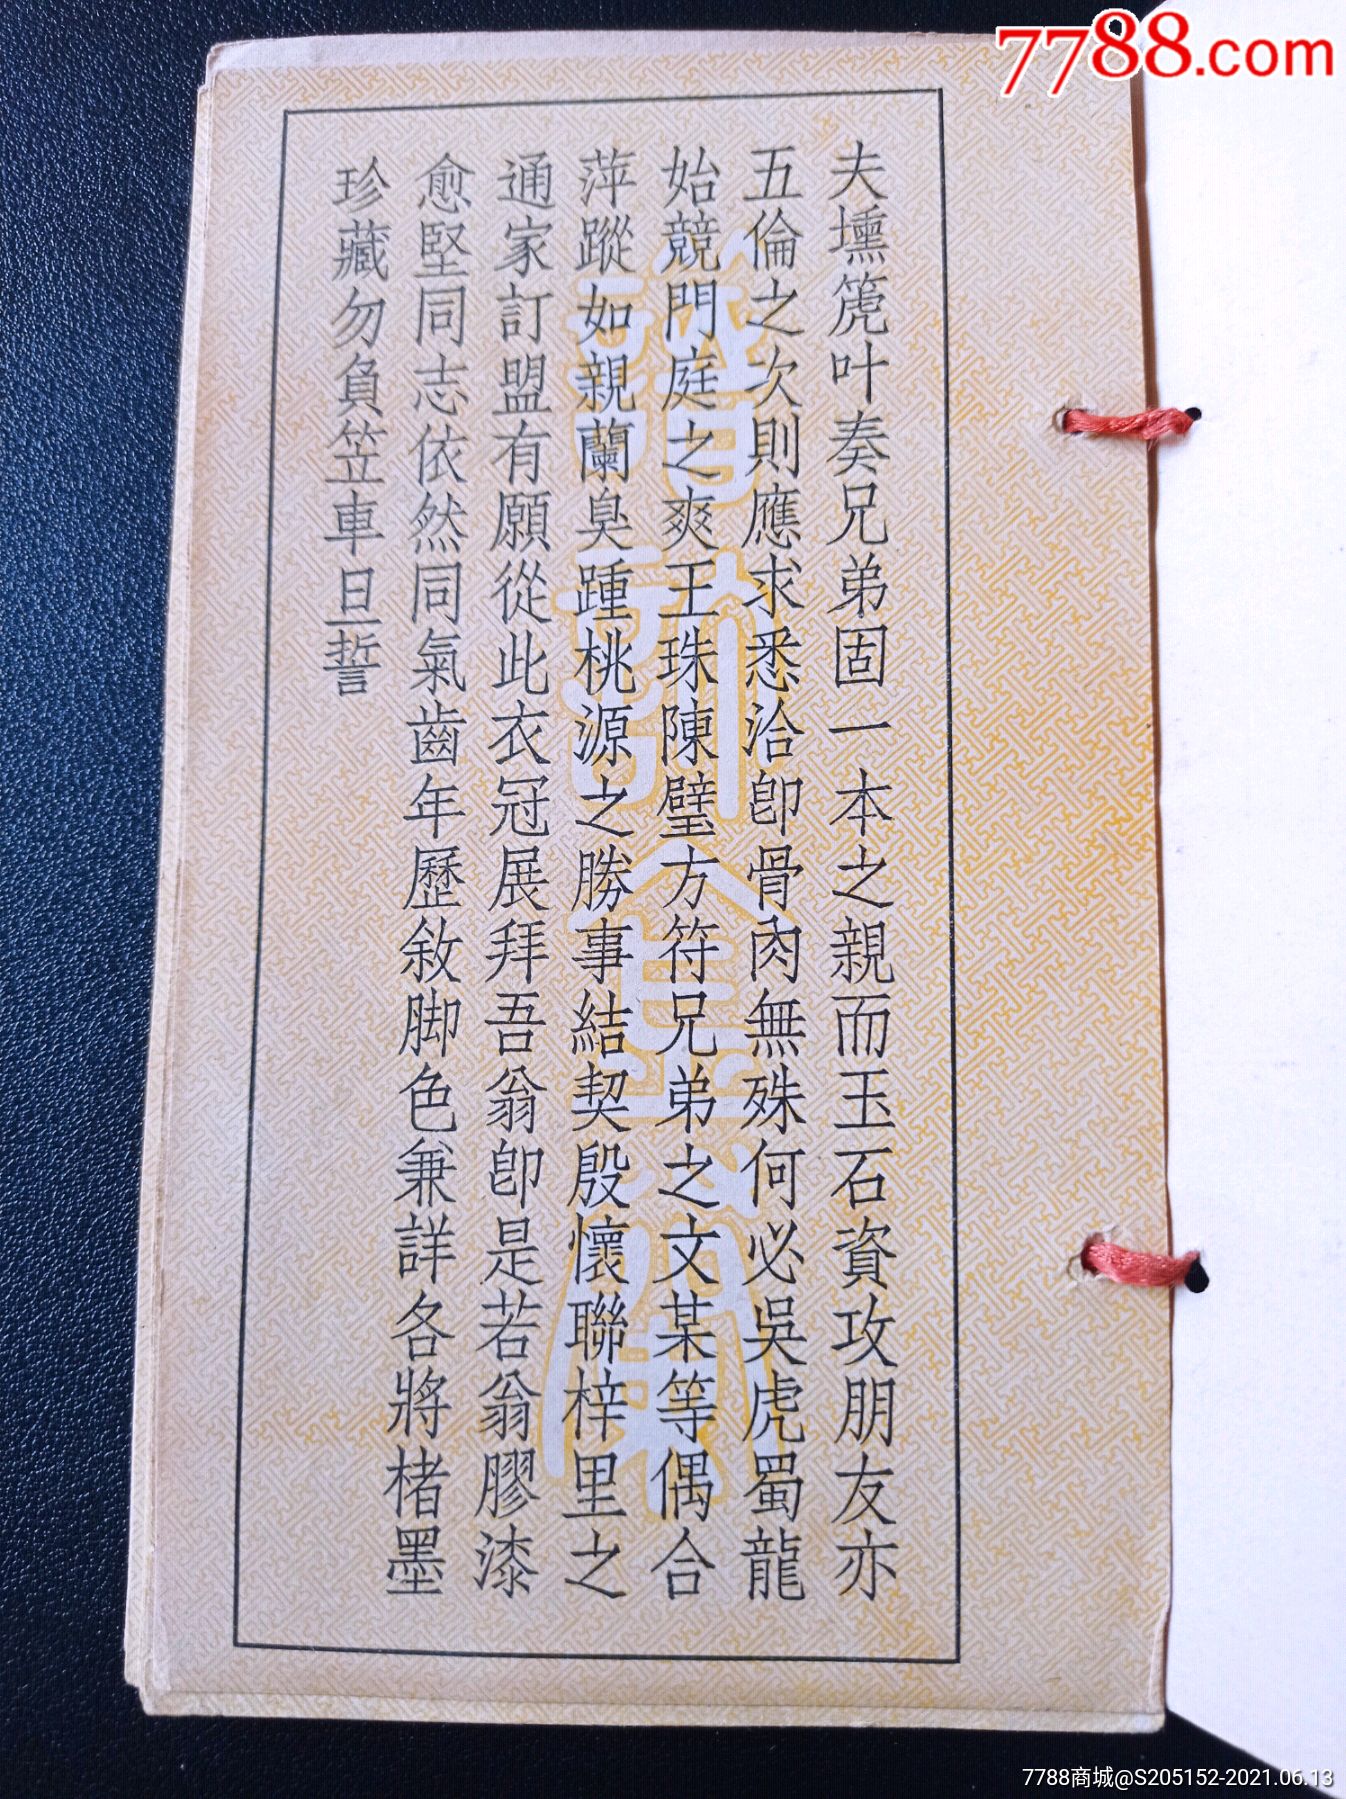 7788.com
夫壎篪叶奏兄弟固一本之親而玉石資攻朋友亦
五倫之次則應求悉洽卽骨肉無殊何必吳虎蜀龍
始競門庭之爽王珠陳璧方符兄弟之文某等偶合
萍蹤如親蘭臭踵桃源之勝事結契殷懷聯梓里之
通家訂盟有願從此衣冠展拜吾翁卽是若翁膠漆
愈堅同志依然同氣齒年歷敘脚色兼詳各將楮墨
珍藏勿負笠車旦誓
7788商城@S205152-2021.06.13